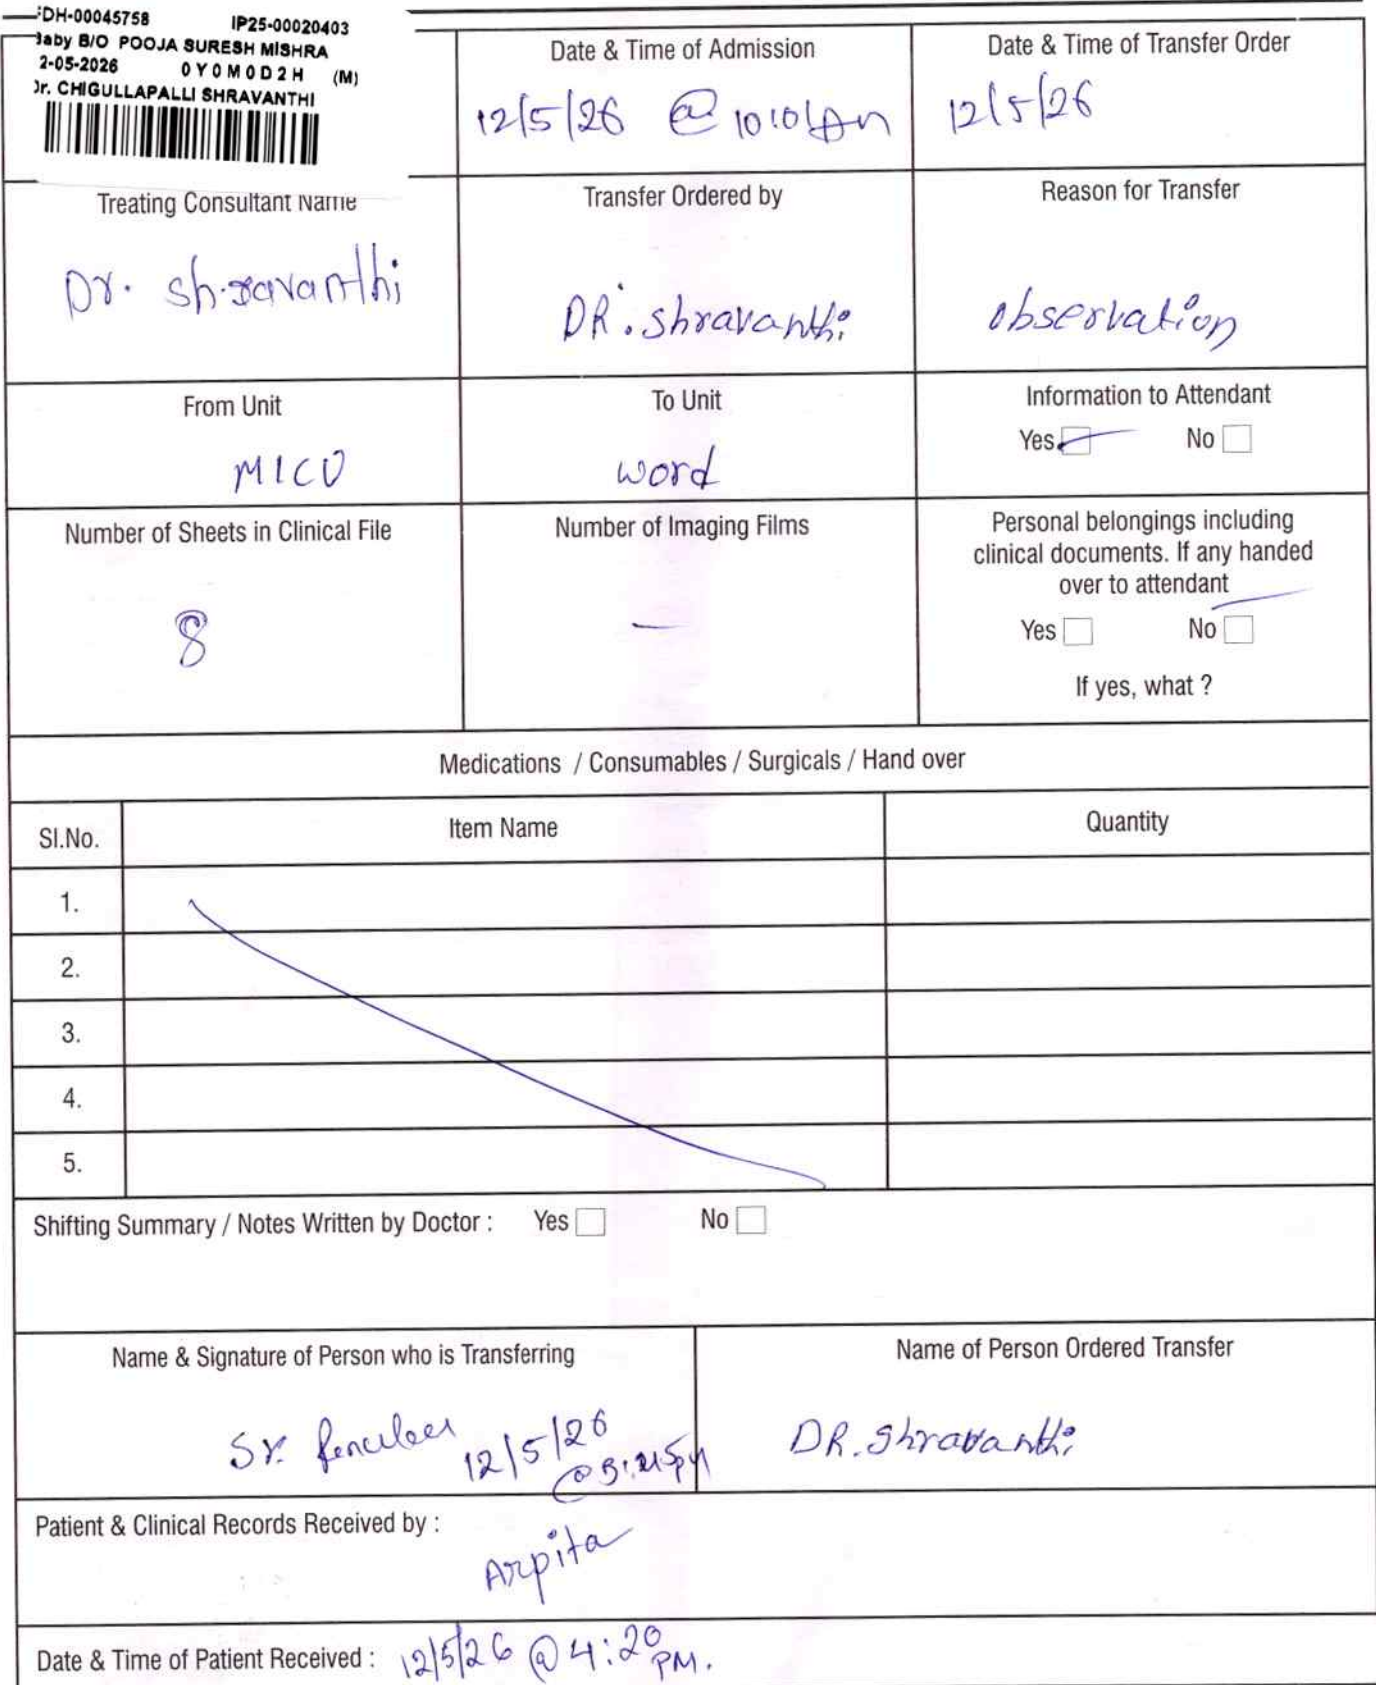 DH-00045758 IP25-00020403
Baby B/O POOJA SURESH MISHRA
2-05-2026 0Y0M0D2H (M)
Dr. CHIGULLAPALLI SHRAVANTHI
Date & Time of Admission
12/5/26 @ 10:01 Am
Date & Time of Transfer Order
12/5/26
Treating Consultant Name
Dr. Shravanthi
Transfer Ordered by
DR. Shravanthi
Reason for Transfer
observation
From Unit
MICU
To Unit
word
Information to Attendant
Yes No
Number of Sheets in Clinical File
8
Number of Imaging Films
—
Personal belongings including
clinical documents. If any handed
over to attendant
Yes No
If yes, what ?
Medications / Consumables / Surgicals / Hand over
Sl.No. Item Name Quantity
1.
2.
3.
4.
5.
Shifting Summary / Notes Written by Doctor : Yes No
Name & Signature of Person who is Transferring
Sr. 12/5/26
Name of Person Ordered Transfer
DR. Shravanthi
Patient & Clinical Records Received by :
Arpita
Date & Time of Patient Received : 12/5/26 @ 4:20 PM.